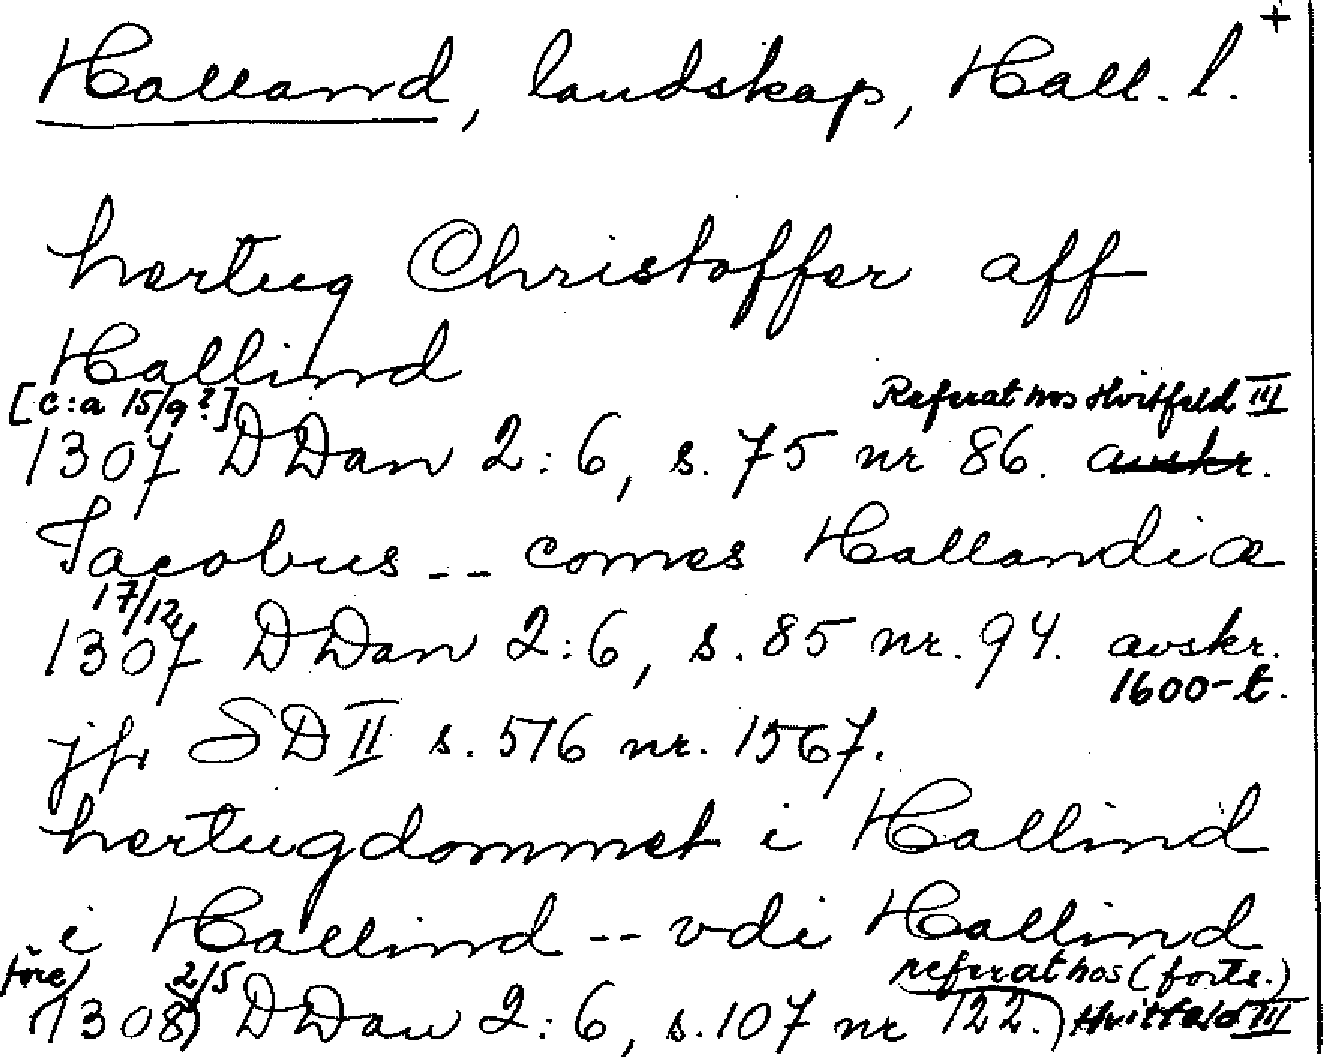 Halland, landskap, Hall. l. +
hertug Christoffer aff
Hallind
[c:a 15/9?] Referat hos Hvitfeld III
1307 DDan 2:6, s. 75 nr 86. avskr.
Jacobus -- comes Hallandiæ
17/12
1307 DDan 2:6, s. 85 nr. 94. avskr.
1600-t.
jfr SD II s. 516 nr. 1567.
hertugdommet i Hallind
i Hallind -- vdi Hallind
(före) 2/5 referat hos (forts.)
(1308) DDan 2:6, s. 107 nr 122.) Hvitfeld III